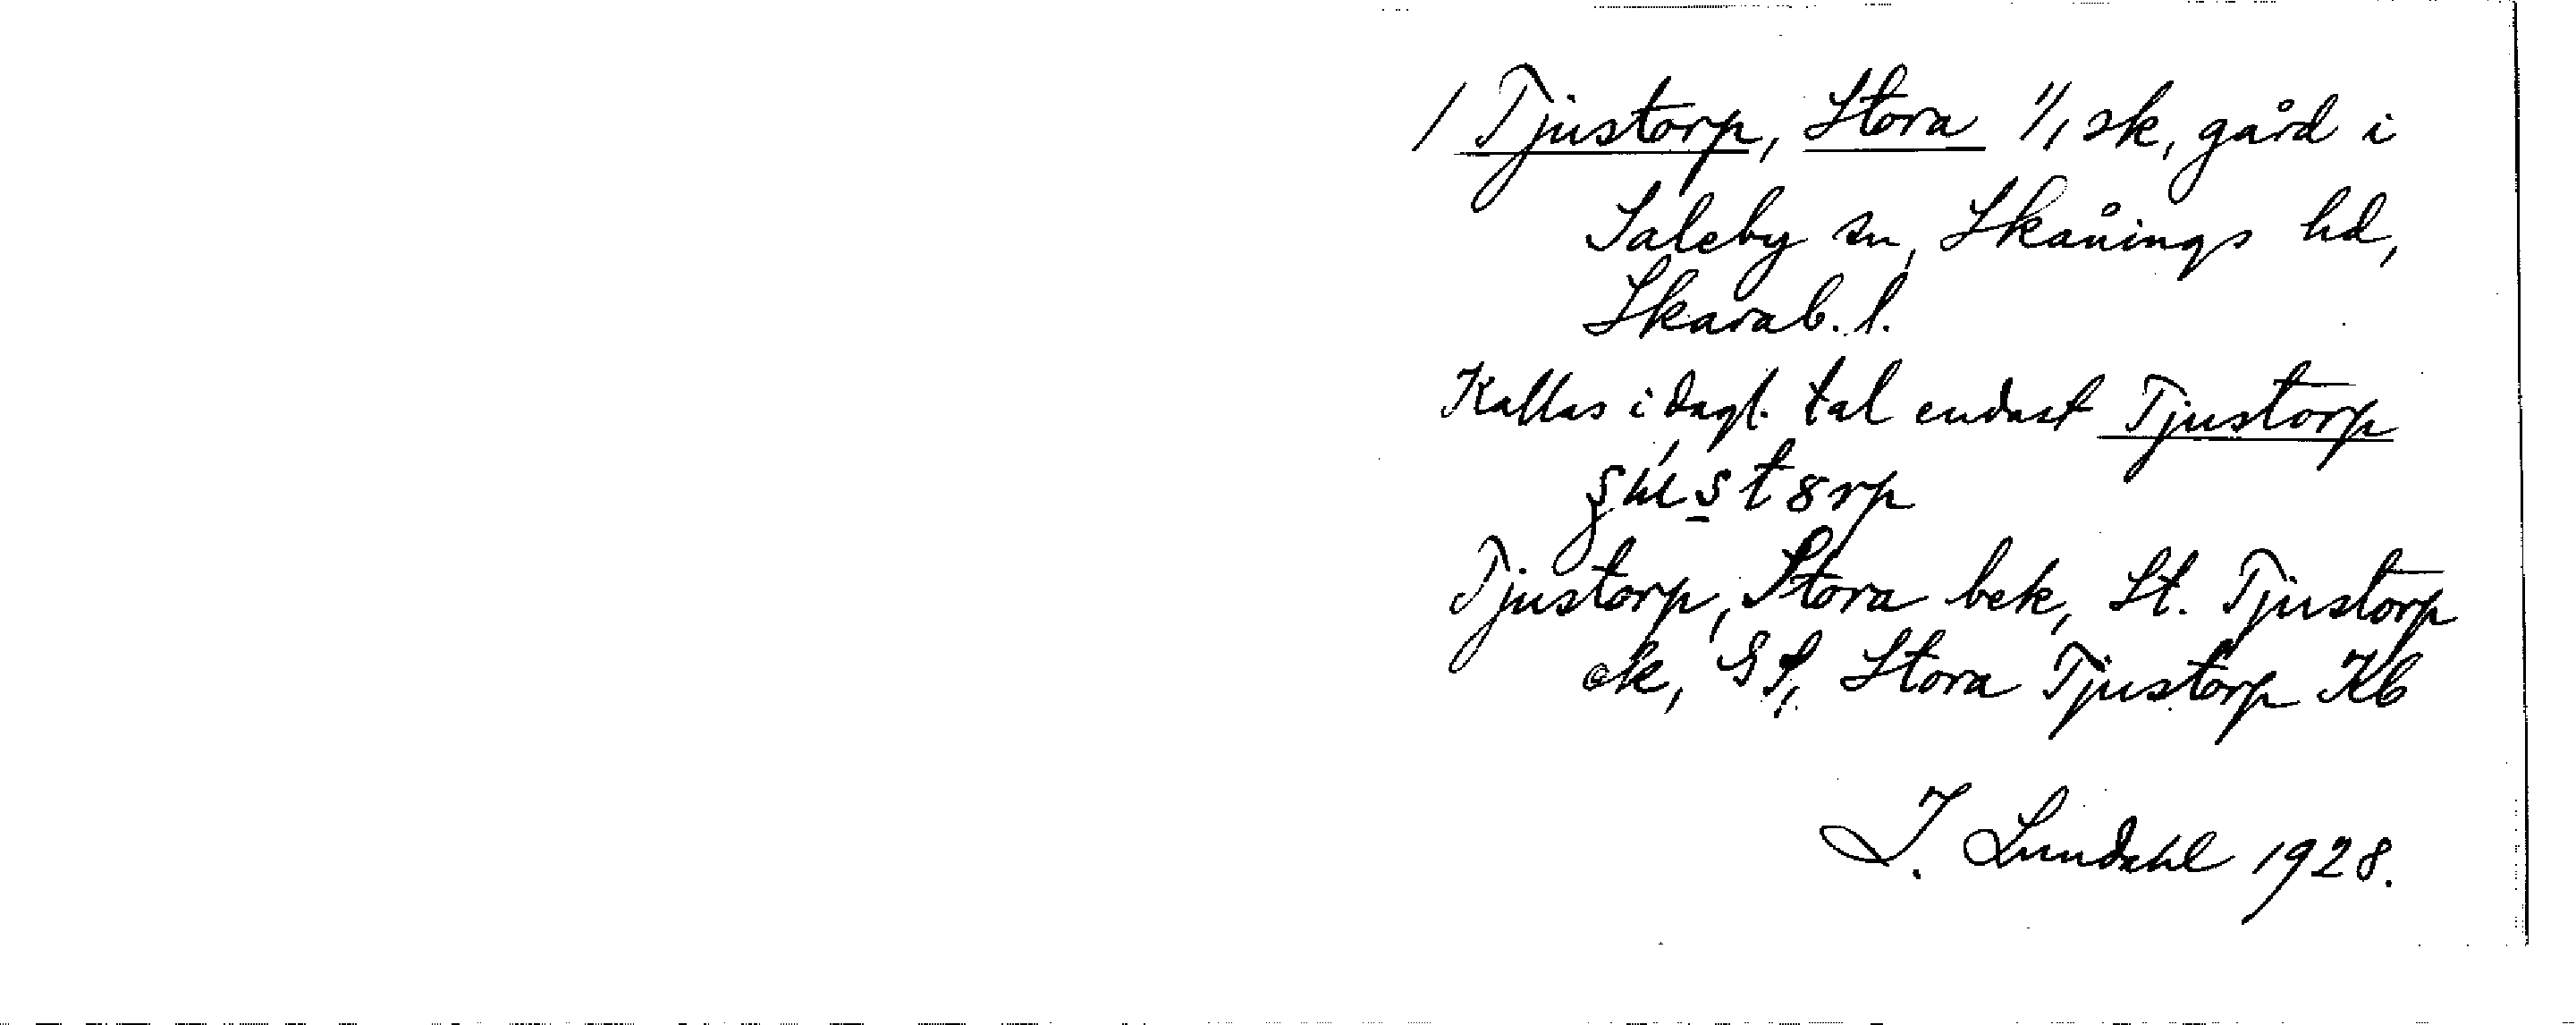 / Tjustorp, Stora 1/1 sk, gård i
Saleby sn, Skånings hd,
Skarab. l.
Kallas i dagl. tal endast Tjustorp
Tjustorp, Stora bek, St. Tjustorp
ek, GS, Stora Tjustorp Kb
I. Lundahl 1928.